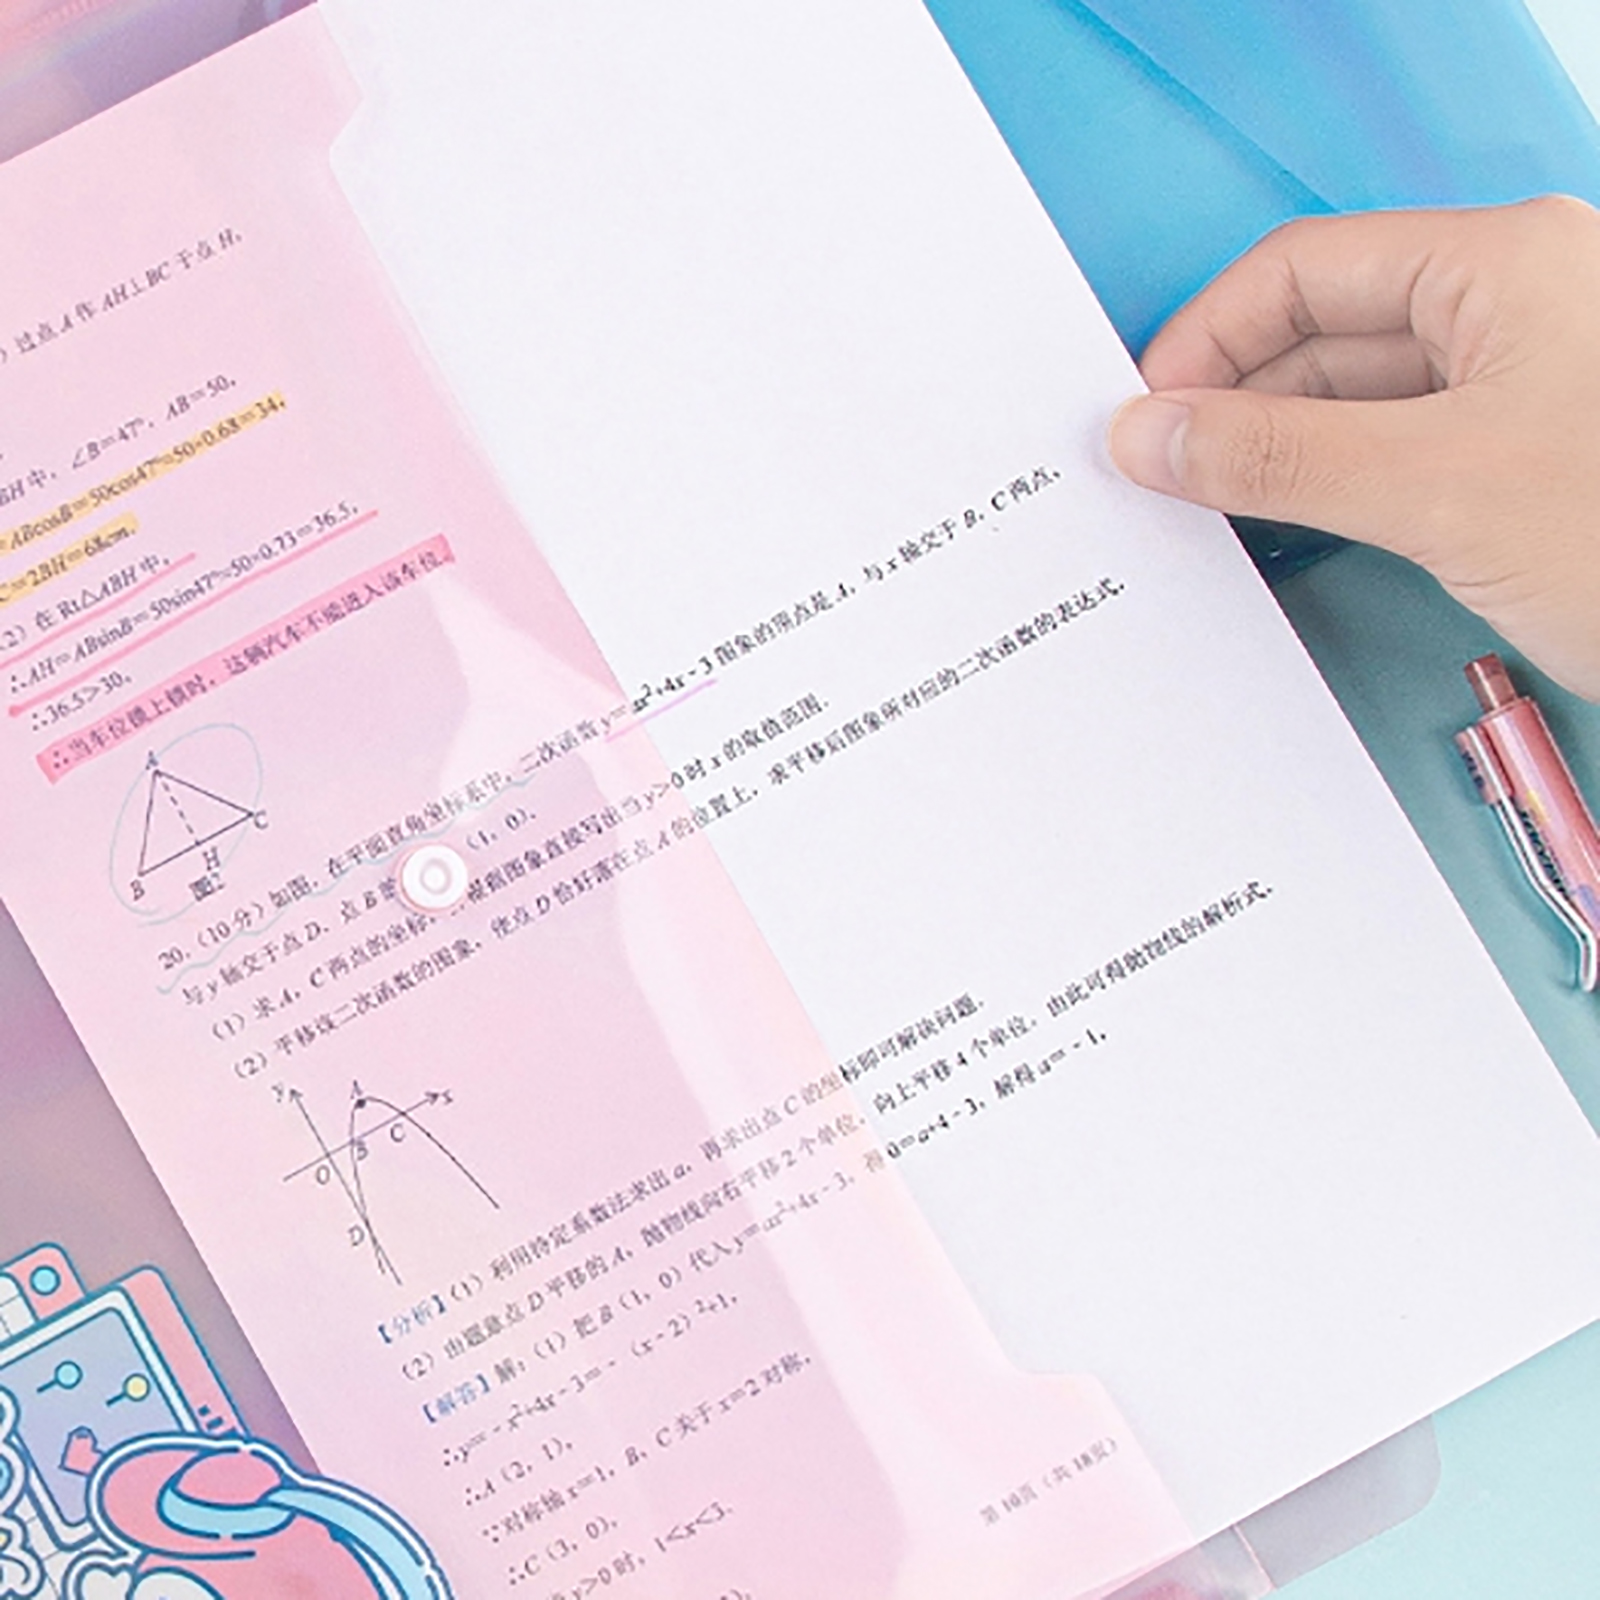 ）过点 A 作 AH⊥BC 于点 H，
BH 中，∠B＝47°，AB＝50，
＝ABcosB＝50cos47°≈50×0.68＝34，
C＝2BH＝68cm．
2）在 Rt△ABH 中，
∴AH＝ABsinB＝50sin47°≈50×0.73＝36.5，
∴36.5＞30，
∴当车位锁上锁时，这辆汽车不能进入该车位．
A
C
H
B
图2
20.（10分）如图，在平面直角坐标系中，二次函数 y＝ax²+4x－3 图象的顶点是 A，与 x 轴交于 B，C 两点，
与 y 轴交于点 D．点 B 的（1，0）．
（1）求 A，C 两点的坐标，根据图象直接写出当 y＞0 时 x 的取值范围．
（2）平移该二次函数的图象，使点 D 恰好落在点 A 的位置上，求平移后图象所对应的二次函数的表达式．
y
A
x
C
B
O
D
【分析】（1）利用待定系数法求出 a，再求出点 C 的坐标即可解决问题．
（2）由题意点 D 平移的 A，抛物线向右平移 2 个单位，向上平移 4 个单位，由此可得抛物线的解析式．
【解答】解：（1）把 B（1，0）代入 y＝ax²+4x－3，得 0＝a+4－3，解得 a＝－1，
∴y＝－x²+4x－3＝－（x－2）²+1，
∴A（2，1），
∵对称轴 x＝1，B，C 关于 x＝2 对称，
∴C（3，0），
y＞0 时，1＜x＜3．
第 10页（共 18页）